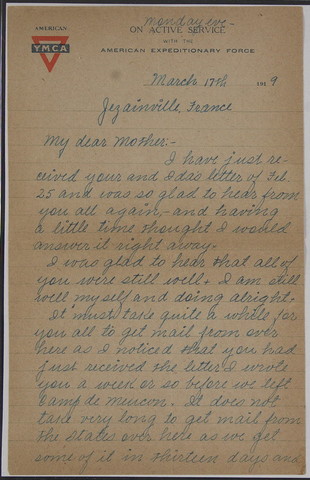 Monday eve-
AMERICAN
YMCA
ON ACTIVE SERVICE
WITH THE
AMERICAN EXPEDITIONARY FORCE
March 17th 1919
Jezainville, France
My dear Mother:-
I have just re-
ceived your and Idas letter of Feb.
25 and was so glad to hear from
you all again,-and having
a little time thought I would
answer it right away.
I was glad to hear that all of
you were still well + I am still
well myself and doing alright.
It must take quite a while for
you all to get mail from over
here as I noticed that you had
just received the letter I wrote
you a week or so before we left
Camp de Meucon. It does not
take very long to get mail from
the States over here as we get
some of it in thirteen days and